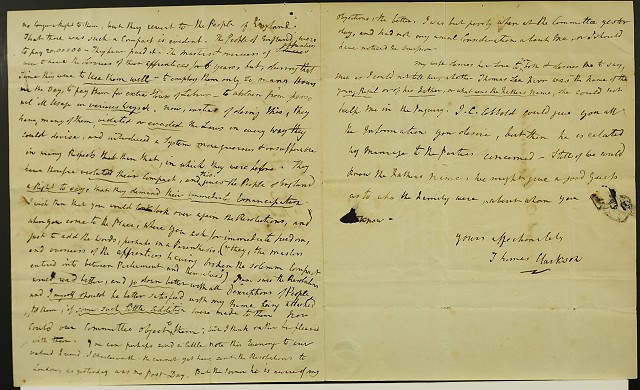 no longer kept to them, but they revert to the People of England.
That there was such a Compact is evident. The People of England were
to pay 20.000000 - They have paid it. The masters
were to have the Services of their apprentices for 6 years, but during that
time they were to use them well - to employ them only so many Hours
in the Day, to pay them for extra Hours of Labour - to abstain from
now, instead of doing this, they
have many of them violated or evaded the Laws in every way they
could devise, and introduced a System more
in many Respects than that, in which they were before - They
have therefore violated their Compact, and this gives the People of England
a Right to say that they demand their immediate Emancipation.
I wish then that you would look over again the Resolutions, and
when you come to the Place, where you ask for immediate freedom,
just to add the words, perhaps in a Parenthesis, (they, the masters
and overseers of the apprentices having broken the solemn compact
entered into between Parliament and themselves) I am sure the Resolutions
would read better, and go down better with all Descriptions of People,
and I myself should be better satisfied with my Name being attached
to them, if some such little Addition were made to them. Nor
could our Committee object to them; but I think rather be pleased
with them. You can perhaps send a little note this Evening to our
valued Friend. He cannot yet have sent the Resolutions to
London, as yesterday was no post Day. But the sooner he is aware of my
objections, the better. I was but poorly when at the Committee yester
day, and had not my usual Consideration about me, or I should
have noticed the omission.
My wife sends her Love to and desires me to say,
was the name of the
young or of her Father, or what was the Father's Name, she could not
help me in the Inquiry. J. C. Cobbold could give you all
the Information you desire, but then he is related
by Marriage to the Parties concerned - Still if we could
know the Father's name, we might give a good guess
as to who the Family were, about whom you
know -
Yours affectionately
Thomas Clarkson